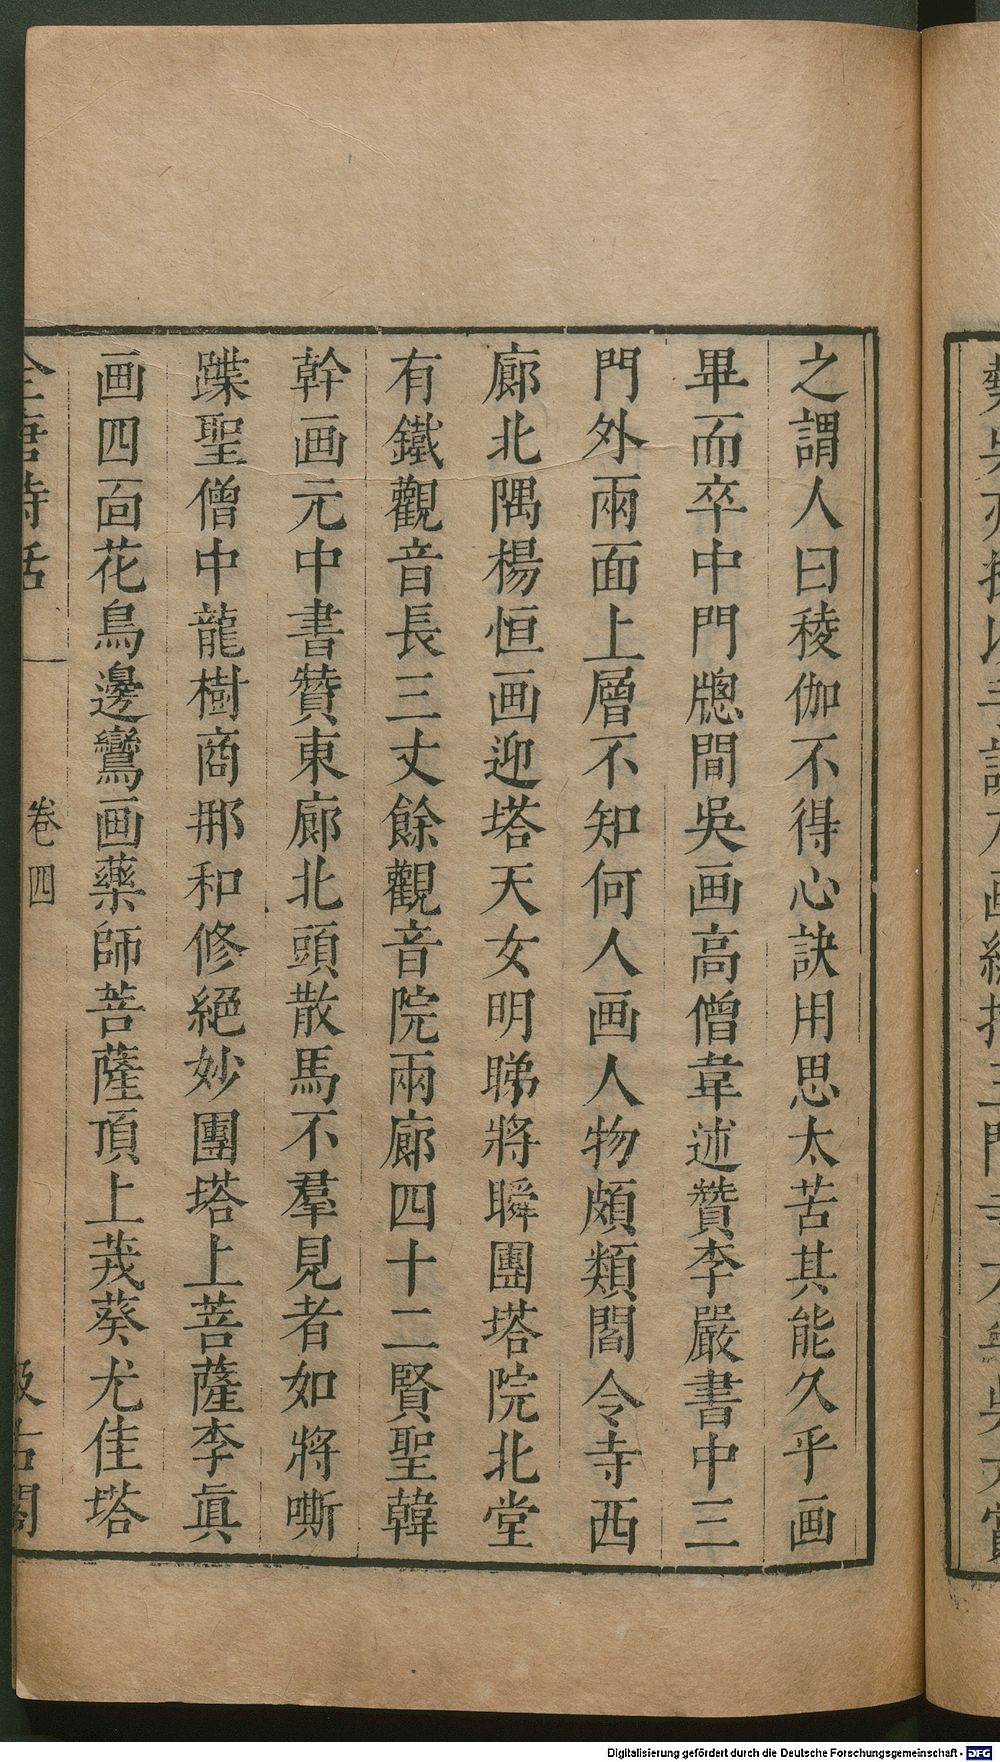 之謂人曰稜伽不得心訣用思太苦其能久乎画
畢而卒中門牕間吳画高僧韋述贊李嚴書中三
門外兩面上層不知何人画人物頗類閻令寺西
廊北隅楊恒画迎塔天女明睇將瞬團塔院北堂
有鐵觀音長三丈餘觀音院兩廊四十二賢聖韓
幹画元中書贊東廊北頭散馬不羣見者如將嘶
蹀聖僧中龍樹商那和修絕妙團塔上菩薩李真
画四面花鳥邊鸞画藥師菩薩頂上茙葵尤佳塔
全唐詩話
卷四
汲古閣
Digitalisierung gefördert durch die Deutsche Forschungsgemeinschaft - DFG